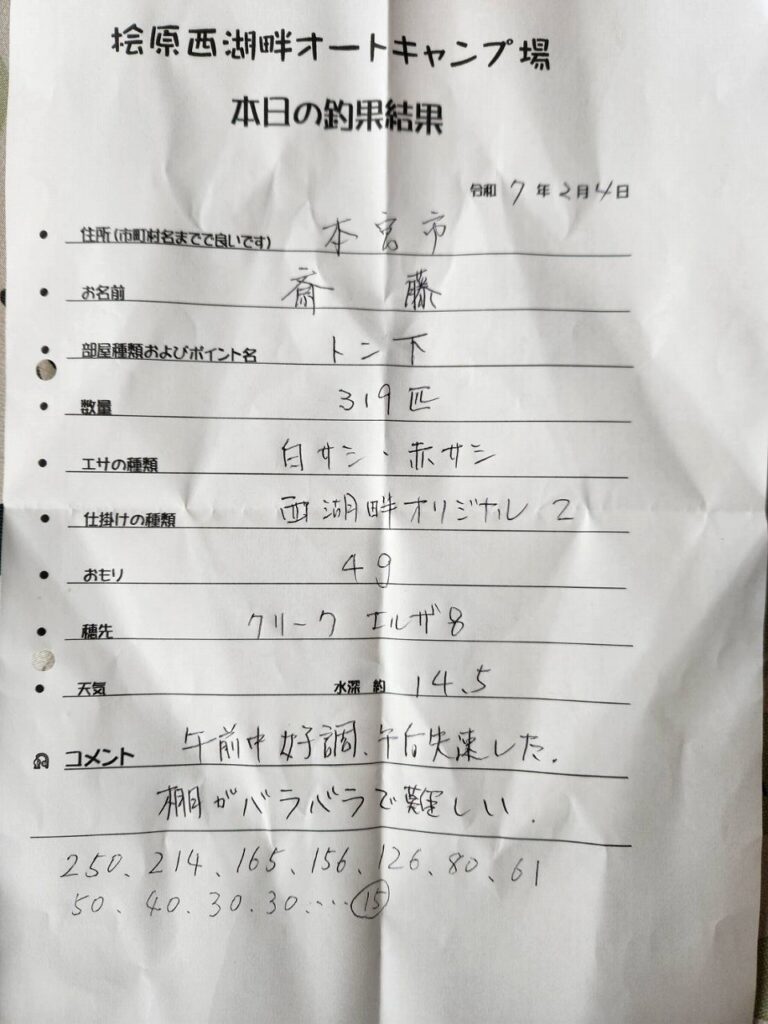 桧原西湖畔オートキャンプ場
本日の釣果結果
令和 7 年 2月 4日
● 住所(市町村名までで良いです) 本宮市
● お名前 斎 藤
● 部屋種類およびポイント名 トン下
● 数量 319匹
● エサの種類 白サシ・赤サシ
● 仕掛けの種類 西湖畔オリジナル 2
● おもり 4g
● 穂先 クリーク エルザ8
● 天気 水深 約 14.5
コメント 午前中好調、午后失速した.
棚がバラバラで難しい.
250、214、165、156、126、80、61
50、40、30、30、・・・・ ⑮